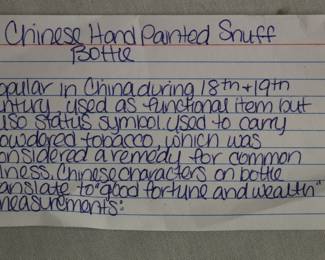 Chinese Hand Painted Snuff
Bottle
opular in China during 18th + 19th
ntury, used as functional item but
lso status symbol. used to carry
owdered tobacco, which was
onsidered a remedy for common
lness. Chinese characters on bottle
anslate to "good fortune and wealth"
measurements: